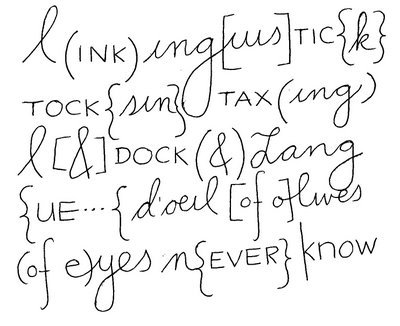 l(INK)ing[uis]TIC{k}
TOCK{sin} TAX(ing)
l[&]DOCK(&)Lang
{UE...{d'oeil [of o]lives
(of e)yes n{EVER} know